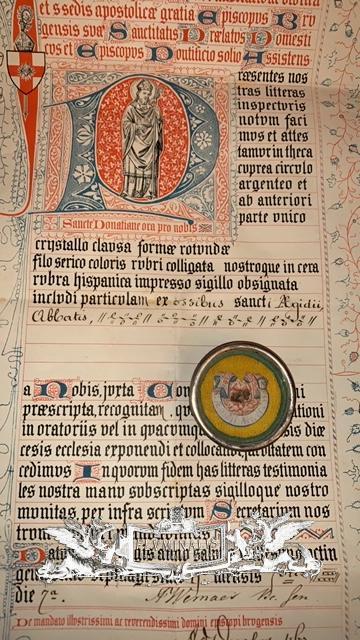 et s edis apostolicæ gratia Episcopus Bru
gensis suæ Sanctitatis Prælatus Domesti
cus et Episcopus Pontificio solio Assistens
Præsentes nos
tras litteras
inspecturis
notum faci
mus et attes
tamur in theca
cuprea circulo
argenteo et
ab anteriori
parte unico
Sancte Donatiane ora pro nobis
crystallo clausa formæ rotundæ
filo serico coloris rubri colligata nostroque in cera
rubra hispanica impresso sigillo obsignata
includi particulam ex ossibus sancti Ægidii
Abbatis,
a Nobis, juxta
præscripta, recognitam,
in oratoriis vel in quacumque
cesis ecclesia exponendi et collocandi facultatem con
cedimus In quorum fidem has litteras testimonia
les nostra manu subscriptas sigilloque nostro
munitas, per infra scriptum Secretarium nos
anno
mensis
die 7a.
De mandato illustrissimi ac reverendissimi domini episcopi brugensis